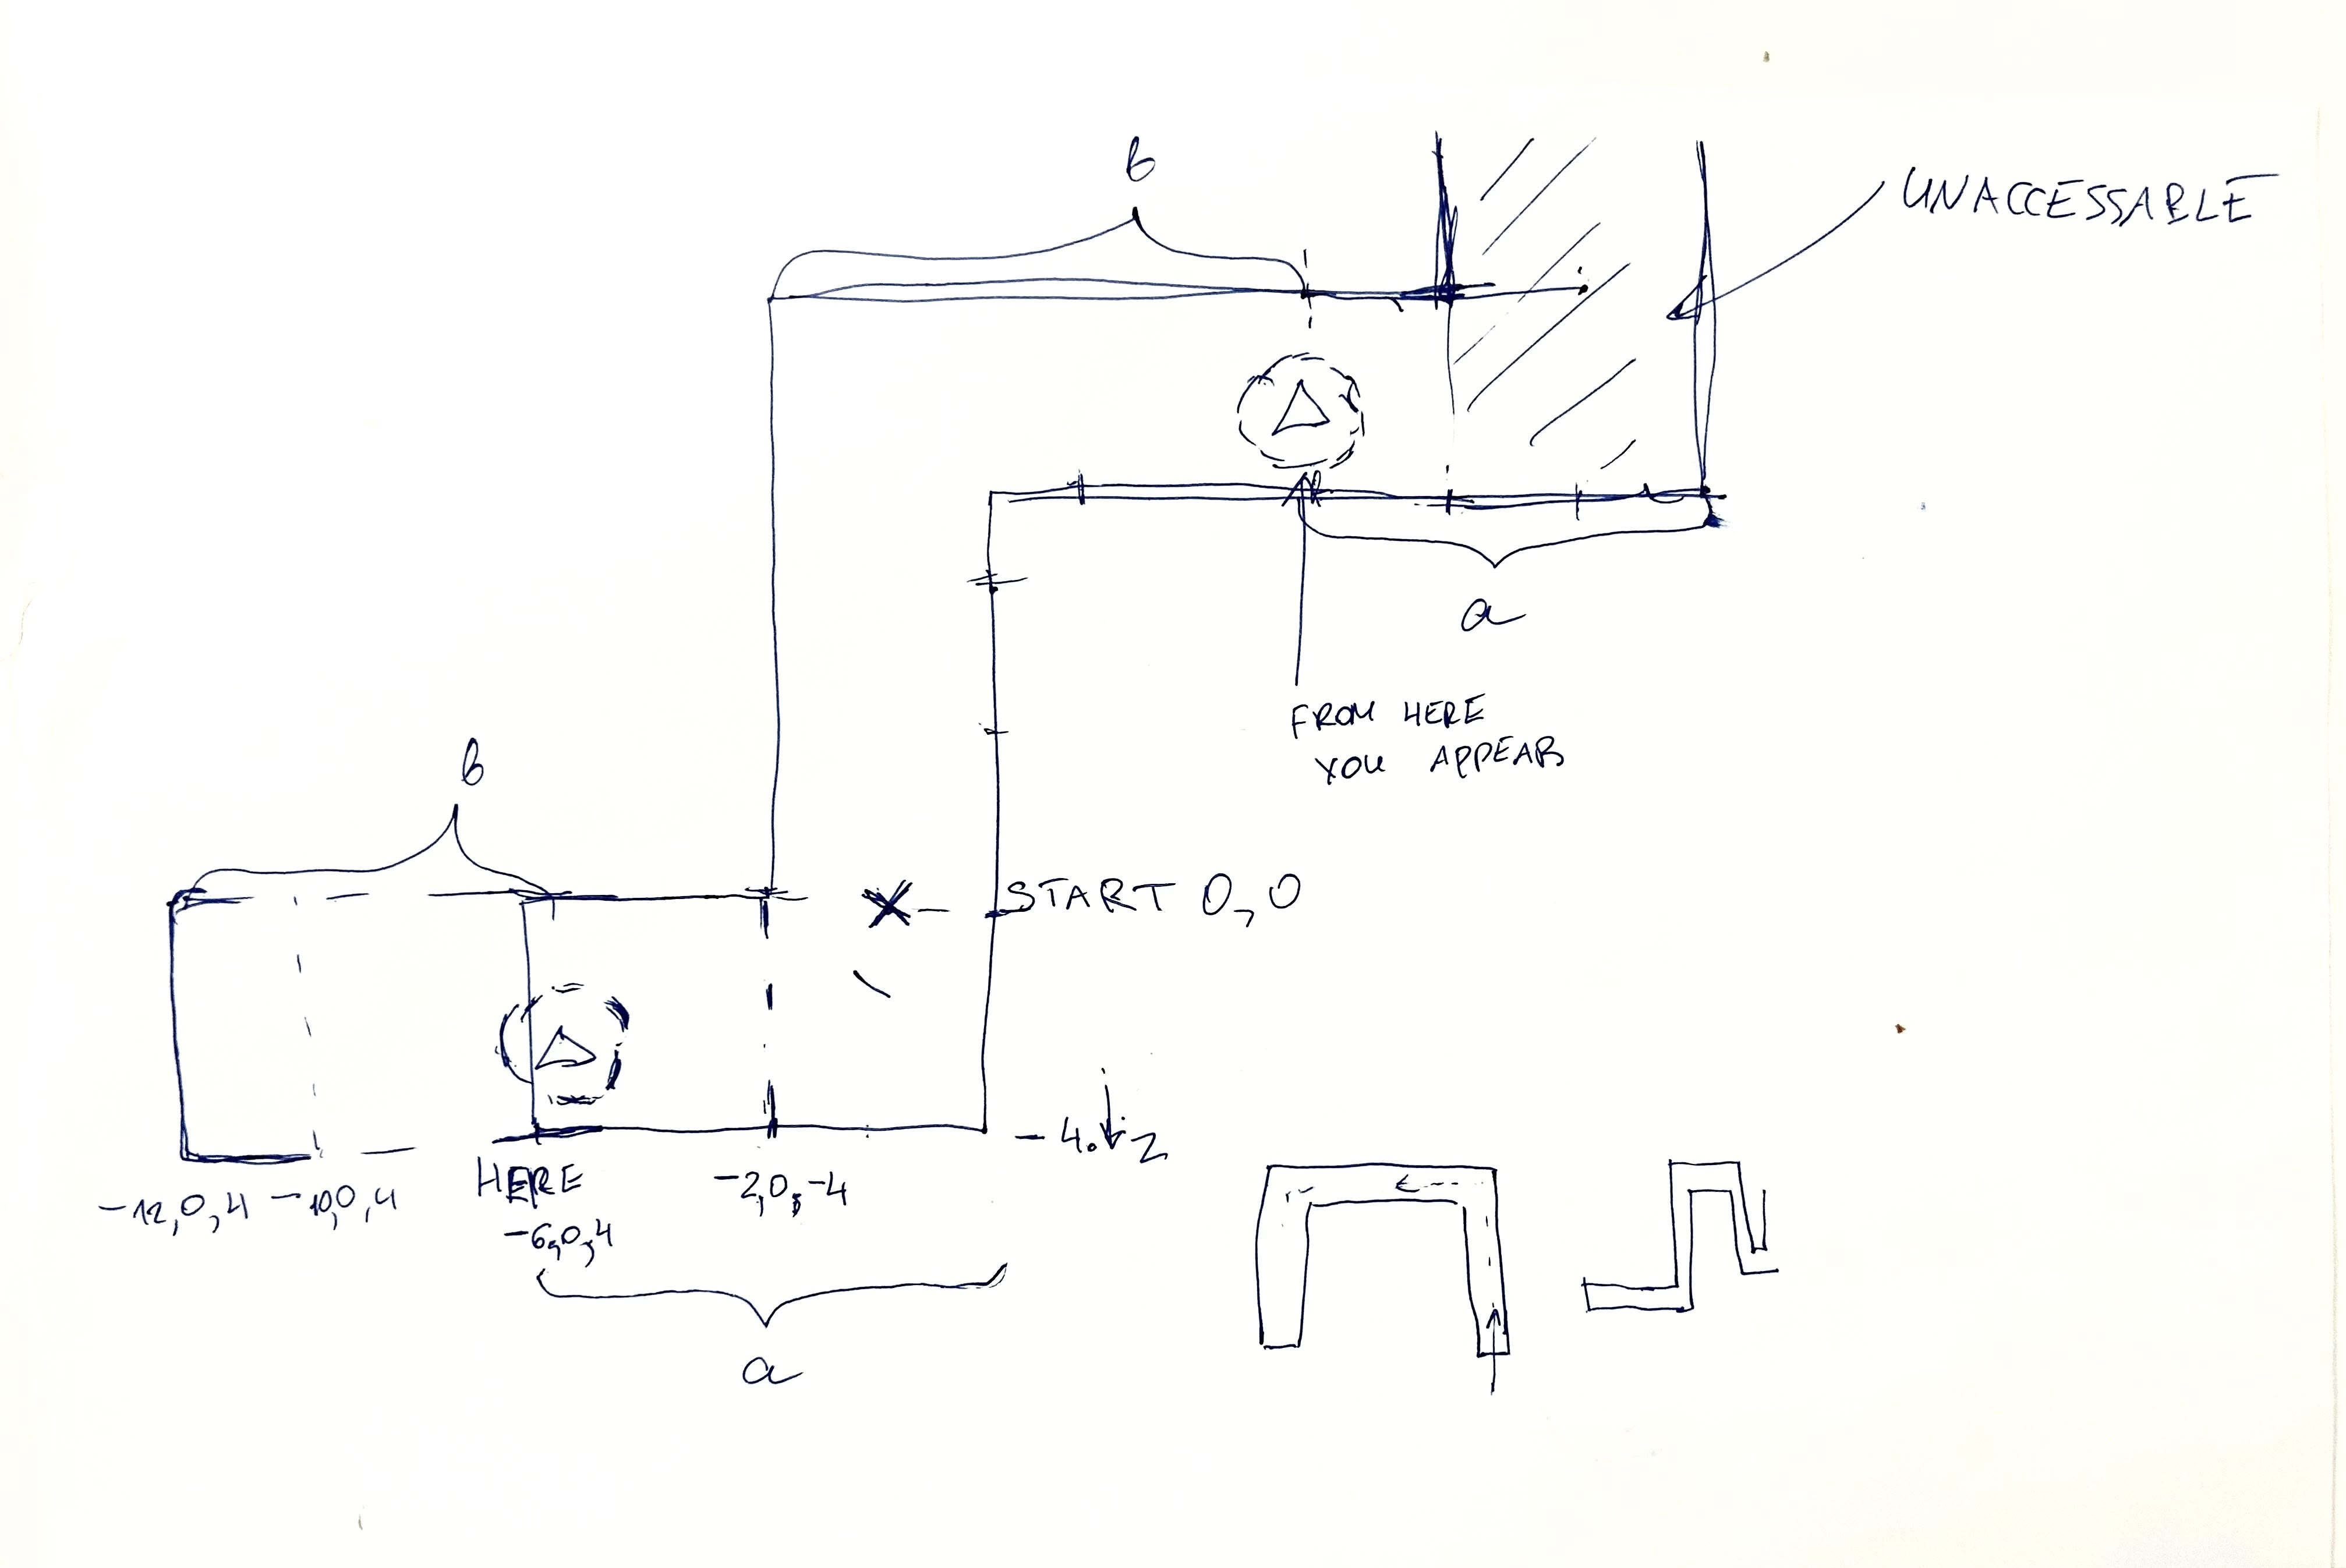 b
UNACCESSABLE
a
FROM HERE
YOU APPEAR
b
START 0,0
-4. z
HERE
-2,0,-4
-12,0,4 -10,0,4
-6,0,4
a